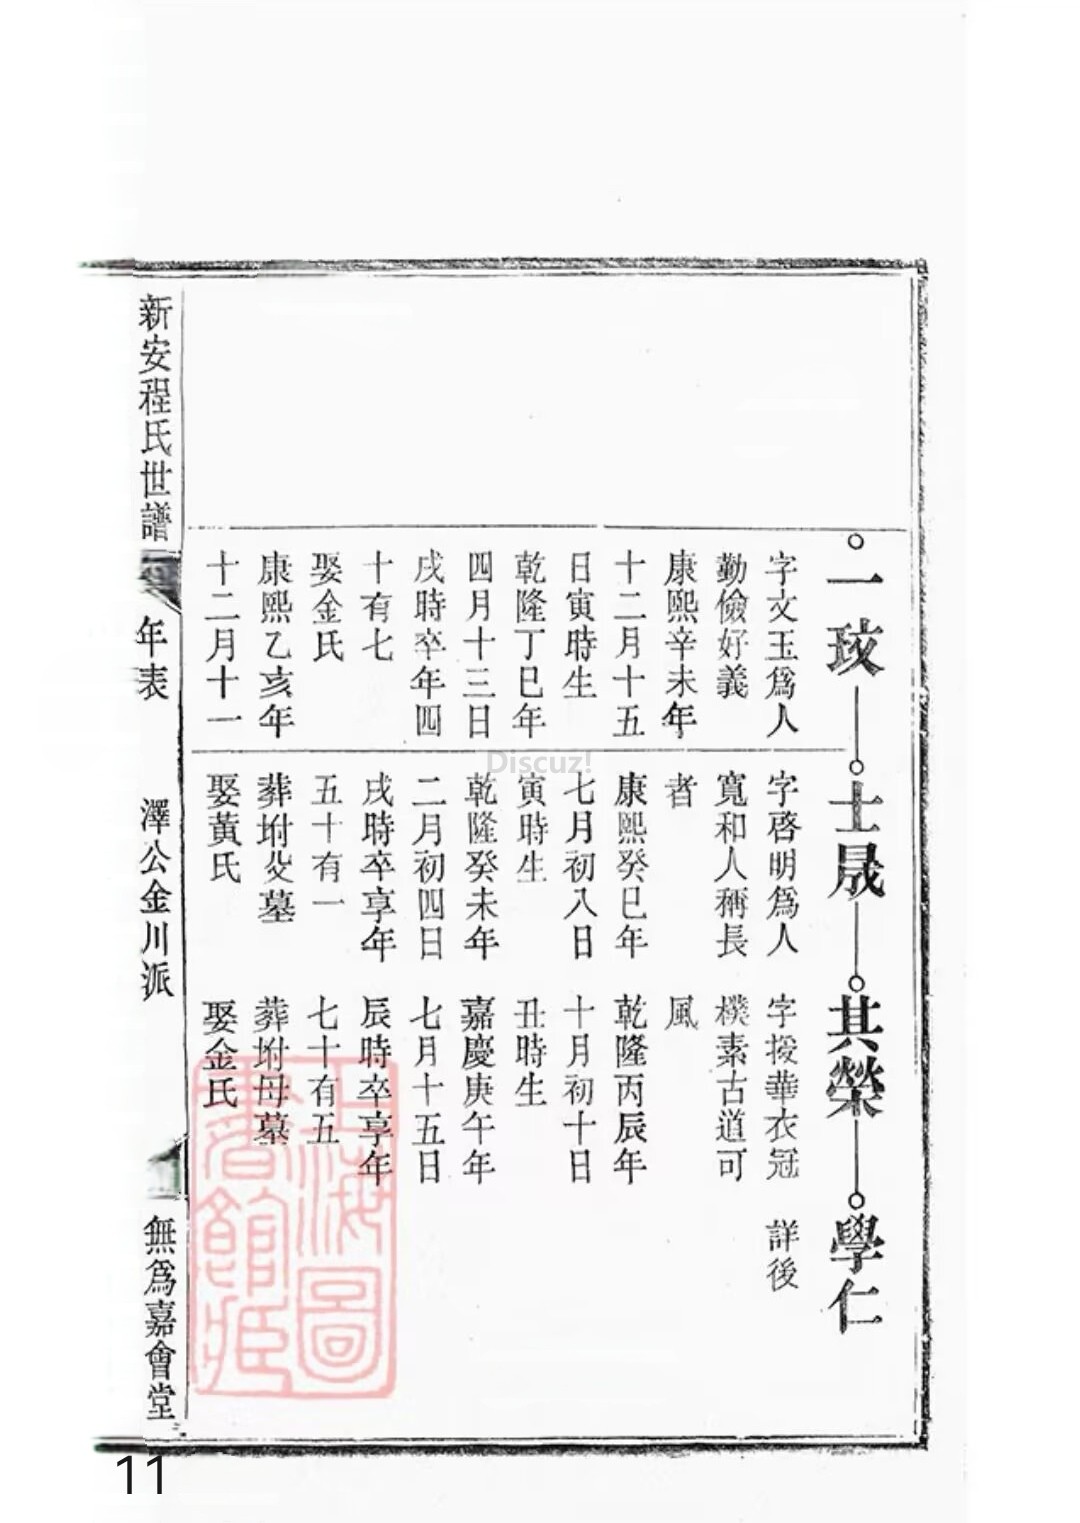 一玫
士晟
其榮
學仁
字文玉爲人
勤儉好義
康熙辛未年
十二月十五
日寅時生
乾隆丁巳年
四月十三日
戌時卒年四
十有七
娶金氏
康熙乙亥年
十二月十一
字啓明爲人
寬和人稱長
者
康熙癸巳年
七月初八日
寅時生
乾隆癸未年
二月初四日
戌時卒享年
五十有一
葬坿父墓
娶黃氏
字援華衣冠
樸素古道可
風
乾隆丙辰年
十月初十日
丑時生
嘉慶庚午年
七月十五日
辰時卒享年
七十有五
葬坿母墓
娶金氏
詳後
新安程氏世譜
年表
澤公金川派
無爲嘉會堂
上海圖
書館藏
Discuz!
11